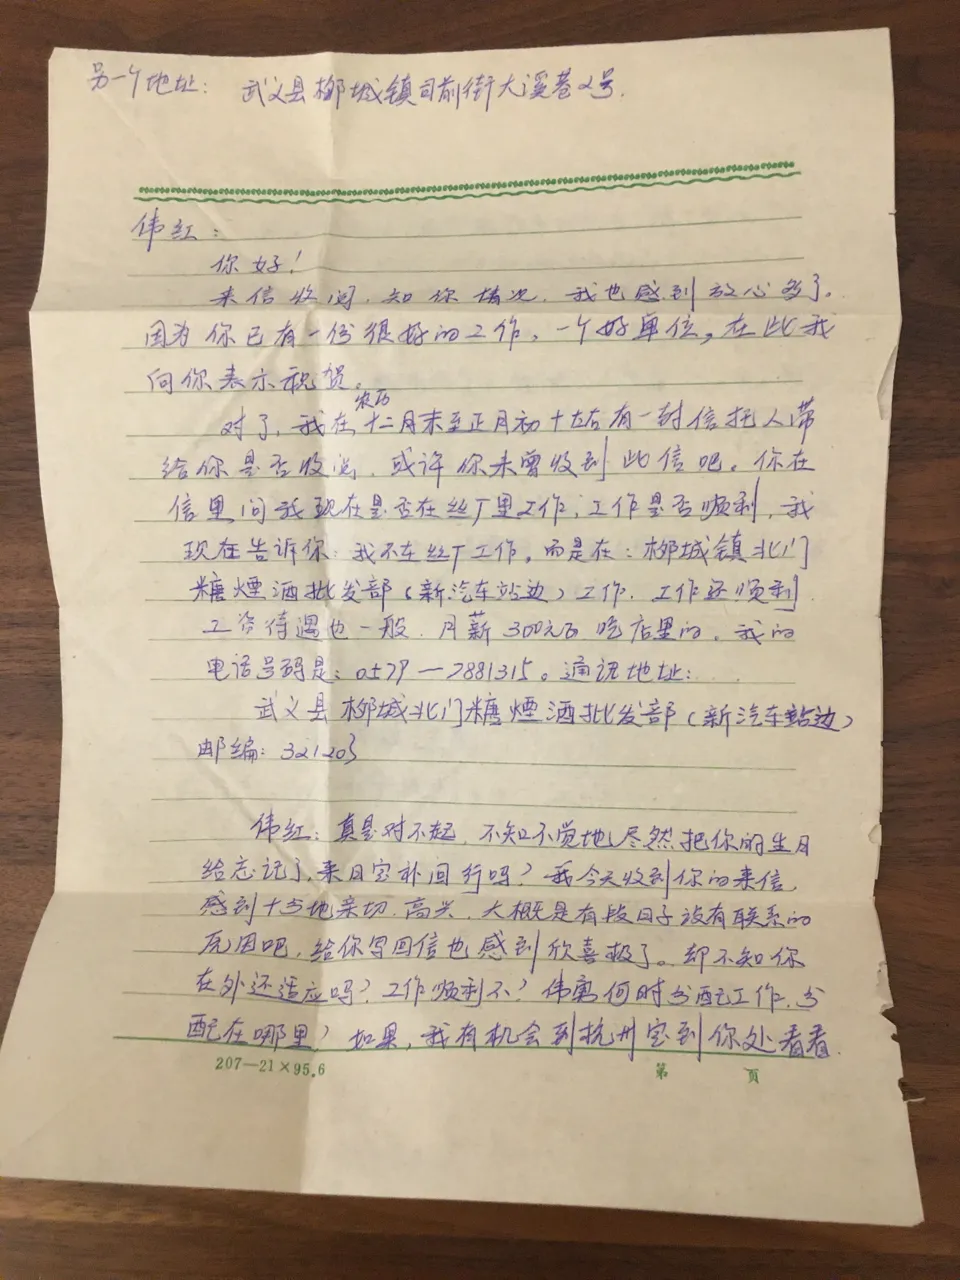 另一个地址：武义县柳城镇司前街大溪巷2号.
伟红：
你好！
来信收阅，知你情况，我也感到放心多了。
因为你已有一份很好的工作，一个好单位，在此我
向你表示祝贺。
农历
对了，我在十二月末至正月初十左右有一封信托人滞
给你是否收到，或许你未曾收到此信吧。你在
信里问我现在是否在丝厂里工作；工作是否顺利，我
现在告诉你：我不在丝厂工作。而是在：柳城镇北门
糖煙酒批发部（新汽车站边）工作. 工作还顺利
工资待遇也一般. 月薪300元 吃店里的. 我的
电话号码是：0579—7881315。通讯地址：
武义县柳城北门糖煙酒批发部（新汽车站边）
邮编：321203
伟红：真是对不起，不知不觉地尽然把你的生日
给忘记了，来日定补回行吗？我今天收到你的来信，
感到十分地亲切.高兴. 大概是有段日子没有联系的
原因吧，给你写回信也感到欣喜极了。却不知你
在外还适应吗？工作顺利不？伟 何时分配工作.分
配在哪里？如果，我有机会到杭州定到你处看看.
207—21×95.6
第 页